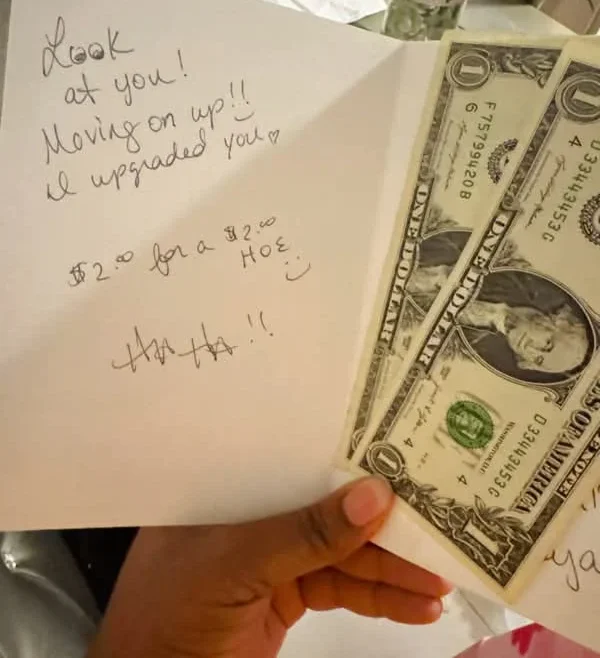 Look
at you!
Moving on up!!
I upgraded you
$2.00 for a $2.00
HOE
HA HA!!
1
F75799420B
6
ONE DOLLAR
1
4
D33443453G
ONE DOLLAR
WASHINGTON, D.C.
D33443453G
4
4
S OF AMERICA
E NOTE
1
1
ya